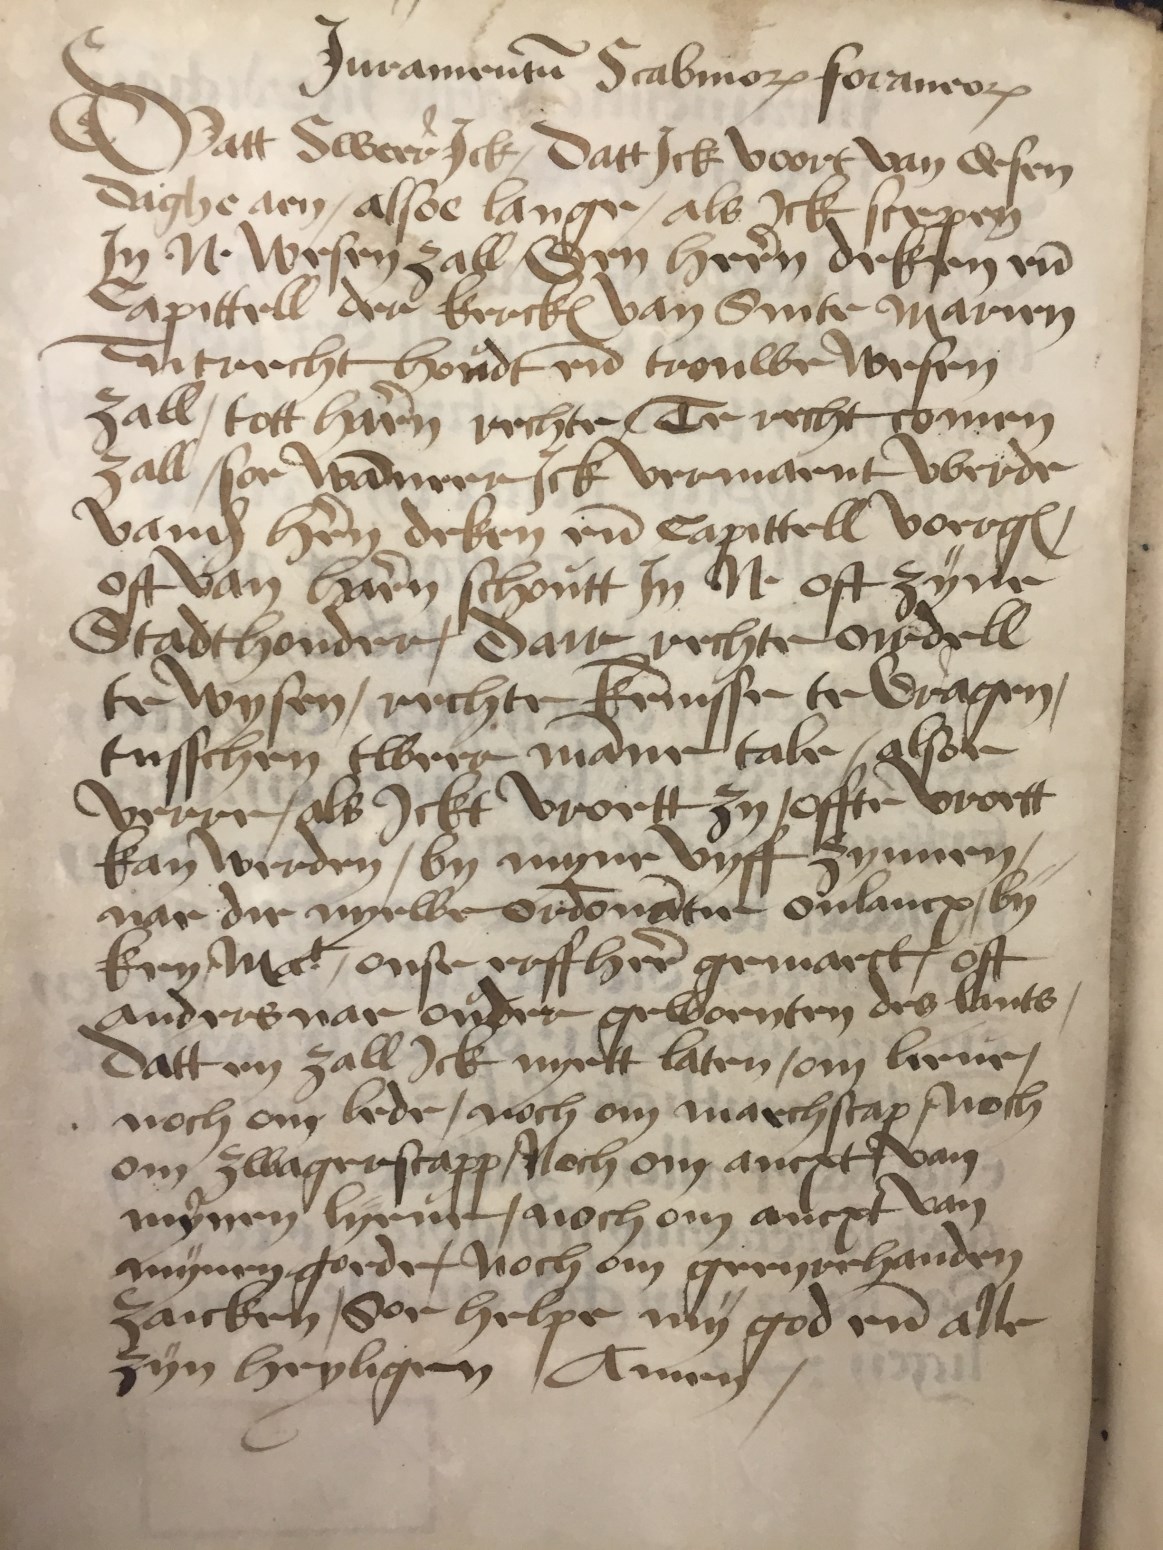 Juramentū Scabinoꝝ foraneoꝝ
Datt Sweer Ick / Datt Ick voort van desen
daghe aen / alsoe lange / als Ick scepen
In N. Wesen zall / Den heren deken eñ
Capittell der kercken van Sinte Marien
Tutrecht houdt eñ trouwe Wesen
zall / tott haren rechte / Te recht comen
zall / soe Wanneer Ick vermaent Werde
vanden heren deken eñ Capittell voorgs /
oft van haren schoutt In N. oft zÿne
Stadthouder / Daer rechte oirdell
te Wysen / rechte kēnisse te dragen /
tusschen tweer māne tale / alsoe
verre / als Ickt vroett zy / offte vroett
kan Werden / by myne vyff zynnen /
nae die nyewe ordonātie onlancx / by
key. Mat. / onse erffheer gemaect / oft
anders nae ouder gewoenten des lants /
Datt en zall Ick nyett laten / om lieue /
noch om lede / noch om maechscap / Noch
om zwagerscapp / Noch om ancxt van
mÿnen lÿeue / noch om ancxt van
mÿnen goede / Noch om geenrehanden
zaicken / Soe helpe mÿ god eñ alle
zÿn heyligen / Amen /